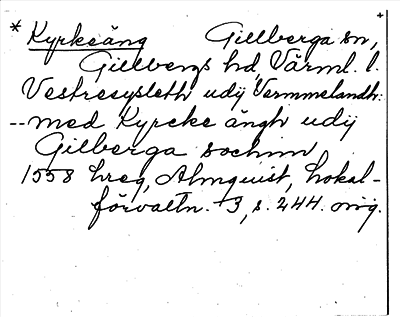 * Kyrkeäng Gillberga sn,
Gillbergs hd, Värml. l.
Vestresysleth udij Vermmelandh:
-- med Kyrcke ängh udij
Gilberga sochnn
1558 hreg, Almquist, Lokal-
förvaltn. 3, s. 244. orig.